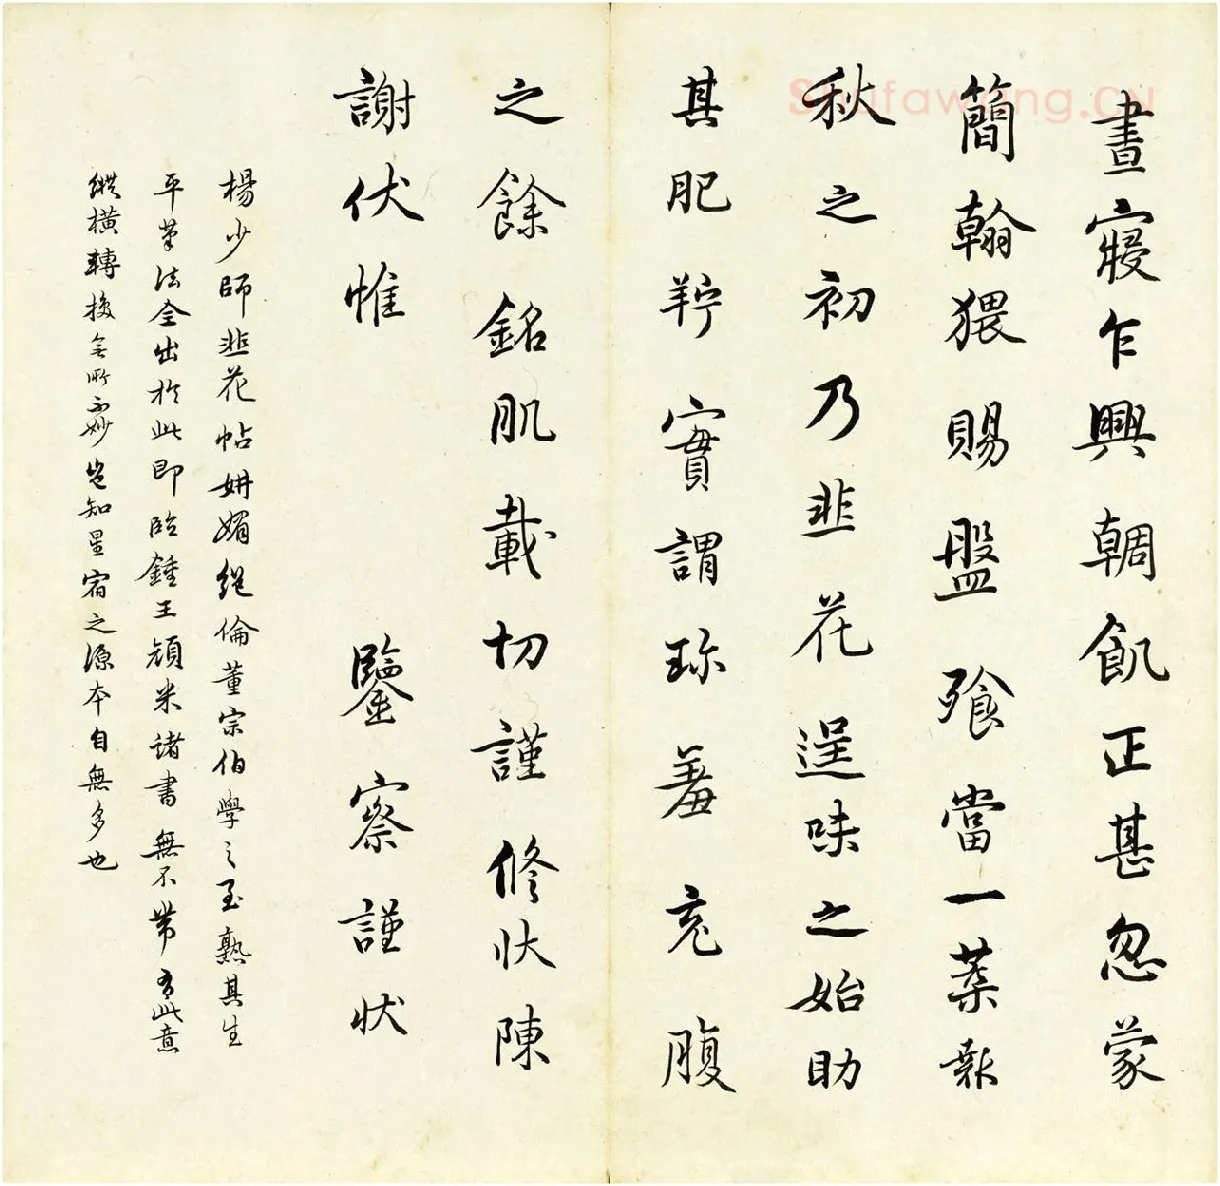 晝寢乍興輖飢正甚忽蒙
簡翰猥賜盤飧當一葉報
秋之初乃韭花逞味之始助
其肥羜實謂珍羞充腹
之餘銘肌載切謹修狀陳
謝伏惟 鑒察謹狀
楊少師韭花帖妍媚絕倫董宗伯學之至熟其生
平筆法全出於此即臨鍾王顏米諸書無不帶有此意
縱橫轉換無所不妙豈知星宿之源本自無多也
Shufawang.CN